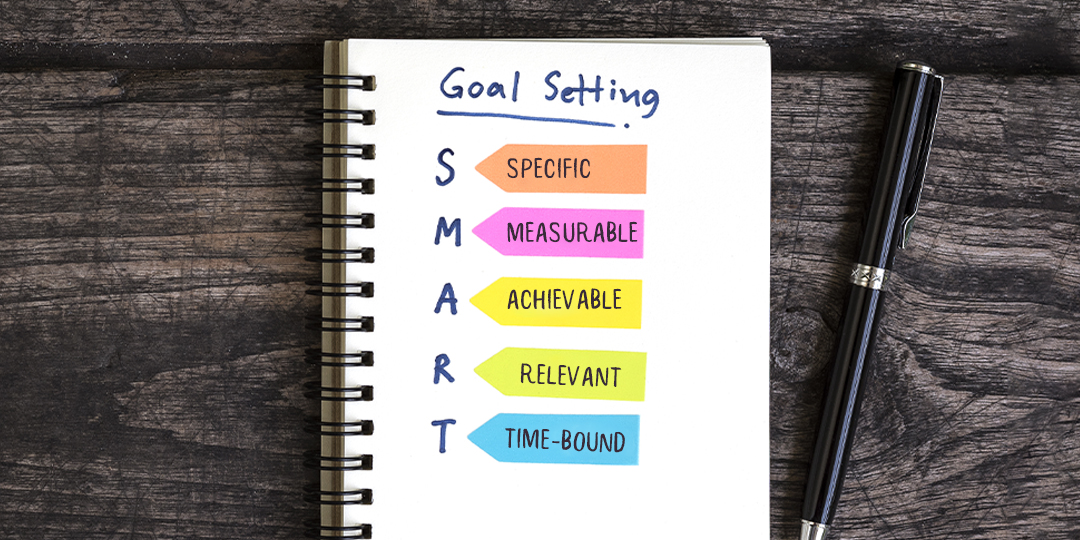 Goal Setting
S SPECIFIC
M MEASURABLE
A ACHIEVABLE
R RELEVANT
T TIME-BOUND